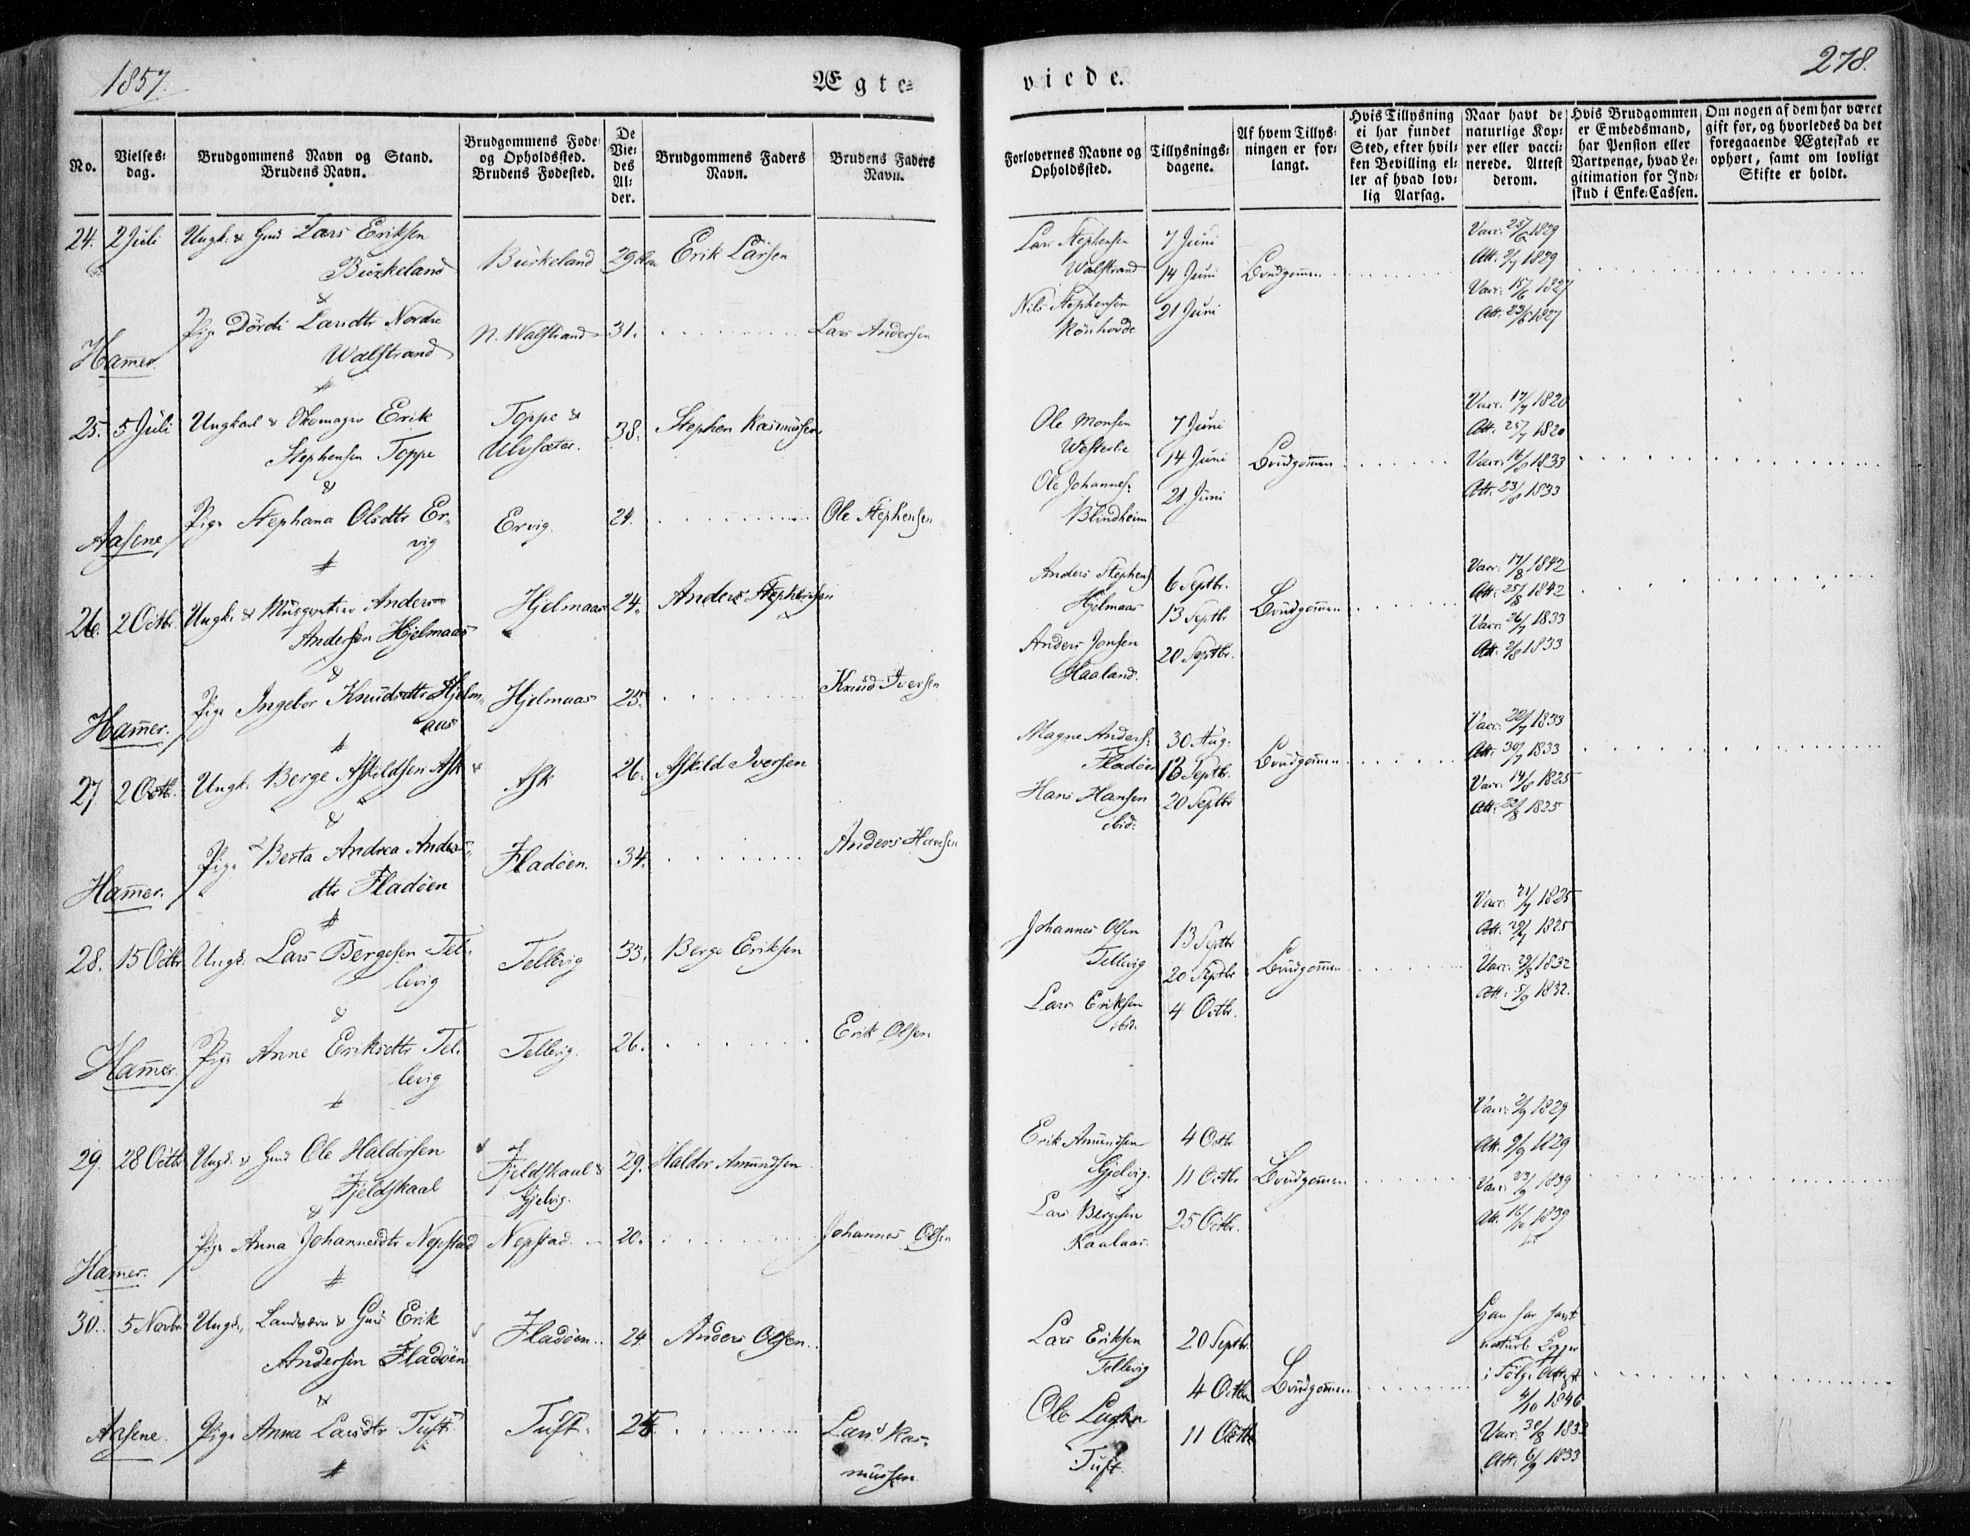 1857.
Ægte=
No.
Vielses=
dag.
Brudgommens Navn og Stand.
Brudens Navn.
Brudgommens Føde=
og Opholdssted.
Brudens Fødested.
De
Vie=
des
Al=
der.
Brudgommens Faders
Navn.
Brudens Faders
Navn.
24. 2 Juli Ungk. & Gmd Lars Eriksen Birkeland 29 Erik Larsen
Birkeland
&
Pige Dördi Larsdtr Nordre N. Walstrand 31. Lars Andersen
Hamer. Walstrand
25. 5 Juli Ungkarl & Skomager Erik Toppe & 38. Stephen Rasmussen
Stephensen Toppe Ulvsæter.
&
Pige Stephana Olsdtr Er= Ervig 24. Ole Stephensen
Aasene vig
26. 2 Octbr. Ungk. & Anders Hjelmaas 24. Anders Stephensen
Andersen Hjelmaas
&
Pige Ingebor Knudsdtr Hjelm= Hjelmaas 25. Knud Iversen
Hamer. aas
27 2 Octbr. Ungk. Berge Askildsen Ask Ask 26. Askild Iversen
&
Pige Berta Andrea Anders= Fladöen. 34. Anders
Hamer. dtr Fladöen
28. 15 Octbr Ungk. Lars Bergesen Tel= Tellevig 33. Berge Eriksen
levig
&
Pige Anne Eriksdtr Tel= Tellevig. 26. Erik Olsen
Hamer. levig
29. 28 Octbr Ungk. & Gmd Ole Haldorsen Fjeldskaal & 29. Haldor Amundsen
Fjeldskaal Gjelvig.
&
Pige Anna Johannesdtr Nepstad Nepstad. 20. Johannes Olsen
Hamer.
30. 5 Novbr Ungk., Landværn & Gmd Erik Fladöen. 24. Anders Olsen.
Andersen Fladöen
&
Aasene. Pige Anna Larsdtr Tuft Tuft. 24. Lars Ras=
mussen
viede.
278.
Forlovernes Navne og
Opholdssted.
Tillysnings=
dagene.
Af hvem Tillys=
ningen er for=
langt.
Hvis Tillysning
ei har fundet
Sted, efter hvil=
ken Bevilling el=
ler af hvad lov=
lig Aarsag.
Naar havt de
naturlige Kop=
per eller vacci=
nerede. Attest
derom.
Hvis Brudgommen
er Embedsmand,
har Pension eller
Vartpenge, hvad Le=
gitimation for Ind=
skud i Enke=Cassen.
Om nogen af dem har været
gift før, og hvorledes da det
foregaaende Ægteskab er
ophørt, samt om lovligt
Skifte er holdt.
Lars Stephensen 7 Juni Vacc. 25/6 1829
Walstrand 14 Juni Brudgommen Att. 1829
Nils Stephensen 21 Juni Vacc. 15/6 1827
Rönhovde Att. 23/6 1827
Ole Monsen 7 Juni Vacc. 17/7 1820
Westerlie 14 Juni Brudgommen Att. 25/7 1820
Ole Johannes: 21 Juni Vacc. 1833
Blindheim Att. 1833
Anders Stephens. 6 Septbr. Vacc. 17/8 1842
Hjelmaas 13 Septbr Brudgommen Att. 25/8 1842
Anders Jonsen 20 Septbr. Vacc. 26/7 1833
Haaland. Att. 1833
Magne Anders: 30 Aug. Vacc. 22/7 1833
Fladöen 13 Septbr. Brudgommen Att. 30/7 1833
Hans Hansen 20 Septbr Vacc. 1825
ibid. Att. 1825
Johannes Olsen 13 Septbr Vacc. 21/7 1825
Tellevig 20 Septbr Brudgommen Att. 29/7 1825
Lars Eriksen 4 Octbr. Vacc. 29/8 1832
ibid. Att. 5/9 1832.
Erik Amundsen 4 Octbr Vacc. 2/9 1829
Gjelvig. 11 Octbr Brudgommen Att. 9/9 1829
Lars Bergesen 25 Octbr. Vacc. 23/9 1839
Kaalaas. Att. 16/10 1839
Han har havt
Lars Eriksen 20 Septbr. naturl. Kopper
Tellevig 4 Octbr Brudgommen i Fölge Attest
4/10 1846
Ole Larsen 11 Octbr Vacc. 30/8 1833
Tuft. Att. 6/9 1833